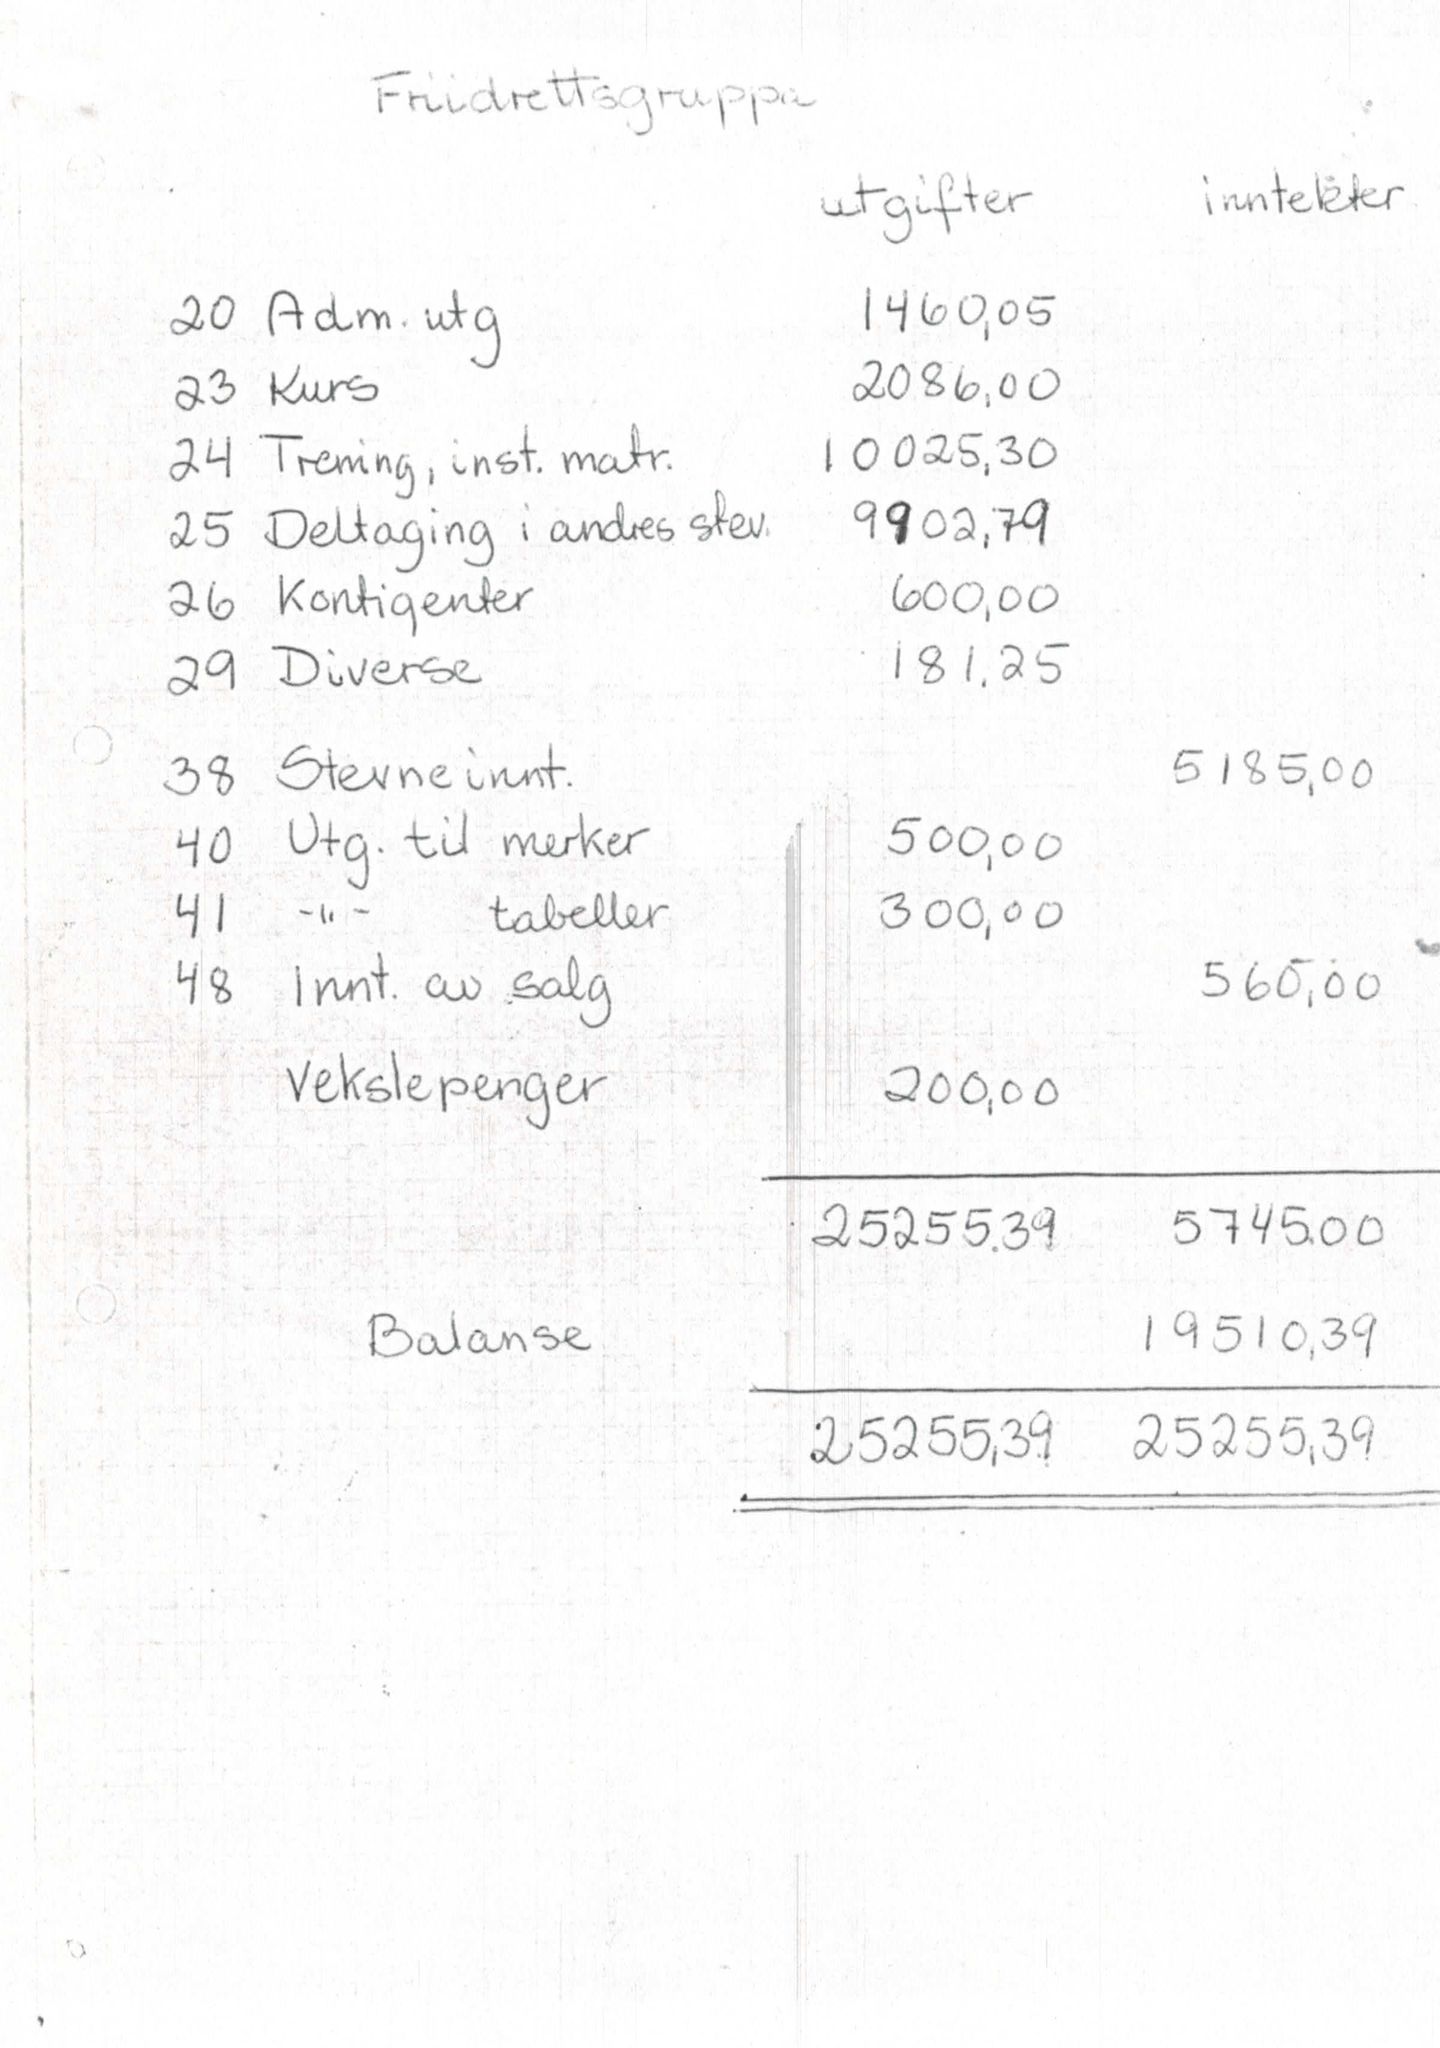 Friidrettsgruppa
utgifter inntekter
20 Adm. utg 1460,05
23 Kurs 2086,00
24 Trening, inst. matr. 10025,30
25 Deltaging i andres stev. 9902,79
26 Kontigenter 600,00
29 Diverse 181.25
38 Stevneinnt. 5185,00
40 Utg. til merker 500,00
41 -"- tabeller 300,00
48 Innt. av salg 560,00
Vekslepenger 200,00
25255.39 5745.00
Balanse 19510,39
25255,39 25255,39